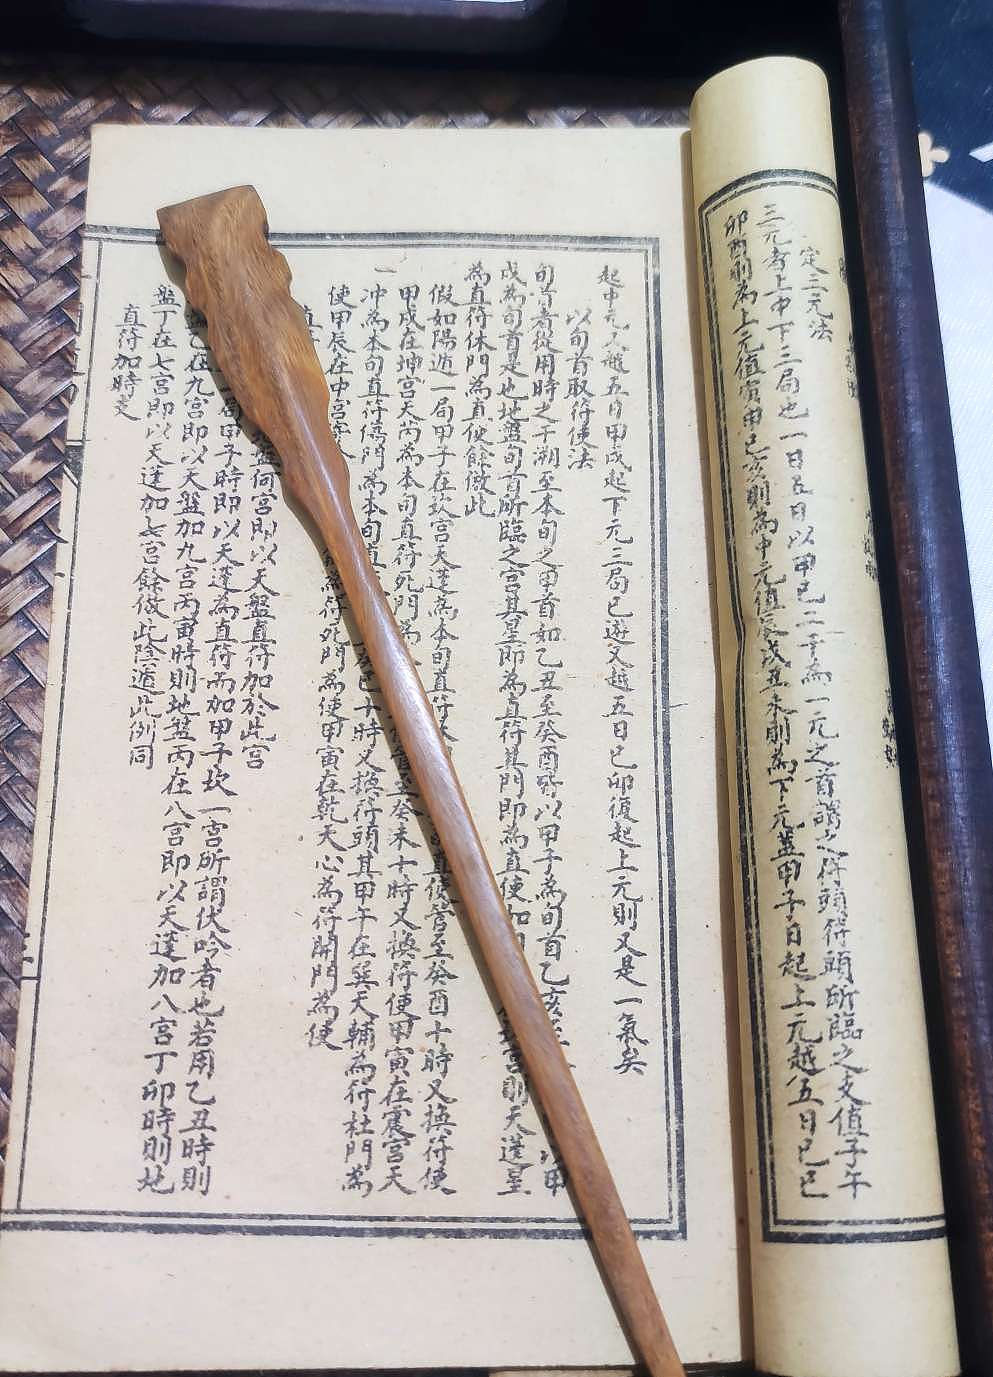 定三元法
三元者上中下三局也一日五日以甲己二干為一元之首謂之符頭符頭所臨之支值子午
卯酉則為上元值寅申巳亥則為中元值辰戌丑未則為下元蓋甲子日起上元越五日己巳
起中元又越五日甲戌起下元三局已遊又越五日己卯復起上元則又是一氣矣
以旬首取符使法
旬首者從用時之干溯至本旬之甲首如乙丑至癸酉皆以甲子為旬首乙亥至 以甲
戌為旬首是也地盤旬首所臨之宮其星即為直符其門即為直使如 宮則天蓬星
為直符休門為直使餘倣此
假如陽遁一局甲子在坎宮天蓬為本旬直符 直使管至癸酉十時又換符使
甲戌在坤宮天芮為本旬直符死門為 管至癸未十時又換符使甲寅在震宮天
冲為本旬直符傷門為本旬直 癸巳十時又換符頭其甲午在巽天輔為符杜門為
使甲辰在中宮 符死門為使甲寅在乾天心為符開門為使
何宮即以天盤直符加於此宮
局甲子時即以天蓬為直符而加甲子坎一宮所謂伏吟者也若用乙丑時則
乙在九宮即以天盤加九宮丙寅時則地盤丙在八宮即以天蓬加八宮丁卯時則地
盤丁在七宮即以天蓬加七宮餘倣此陰遁此例同
直符加時支